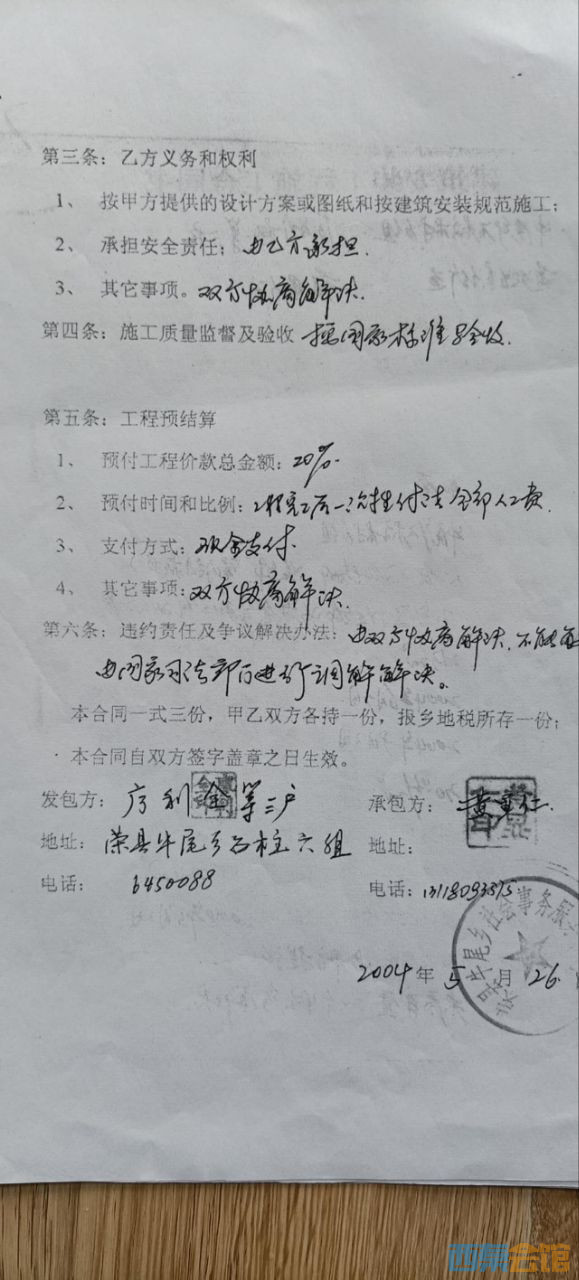 第三条：乙方义务和权利
1、 按甲方提供的设计方案或图纸和按建筑安装规范施工；
2、 承担安全责任；由乙方承担.
3、 其它事项。双方协商解决.
第四条：施工质量监督及验收 按国家标准验收.
第五条：工程预结算
1、 预付工程价款总金额：20%.
2、 预付时间和比例：工程完工后一次性付清全部人工费.
3、 支付方式：现金支付.
4、 其它事项：双方协商解决.
第六条：违约责任及争议解决办法：由双方协商解决.不能
由国家司法部门进行调解解决。
本合同一式三份，甲乙双方各持一份，报乡地税所存一份；
本合同自双方签字盖章之日生效。
发包方： 利金等三户 承包方：黄 仁.
地址：荣县牛尾乡石柱六组 地址：
电话： 6450088 电话：
牛尾乡社会事务服
2004年5月26
西萊会馆